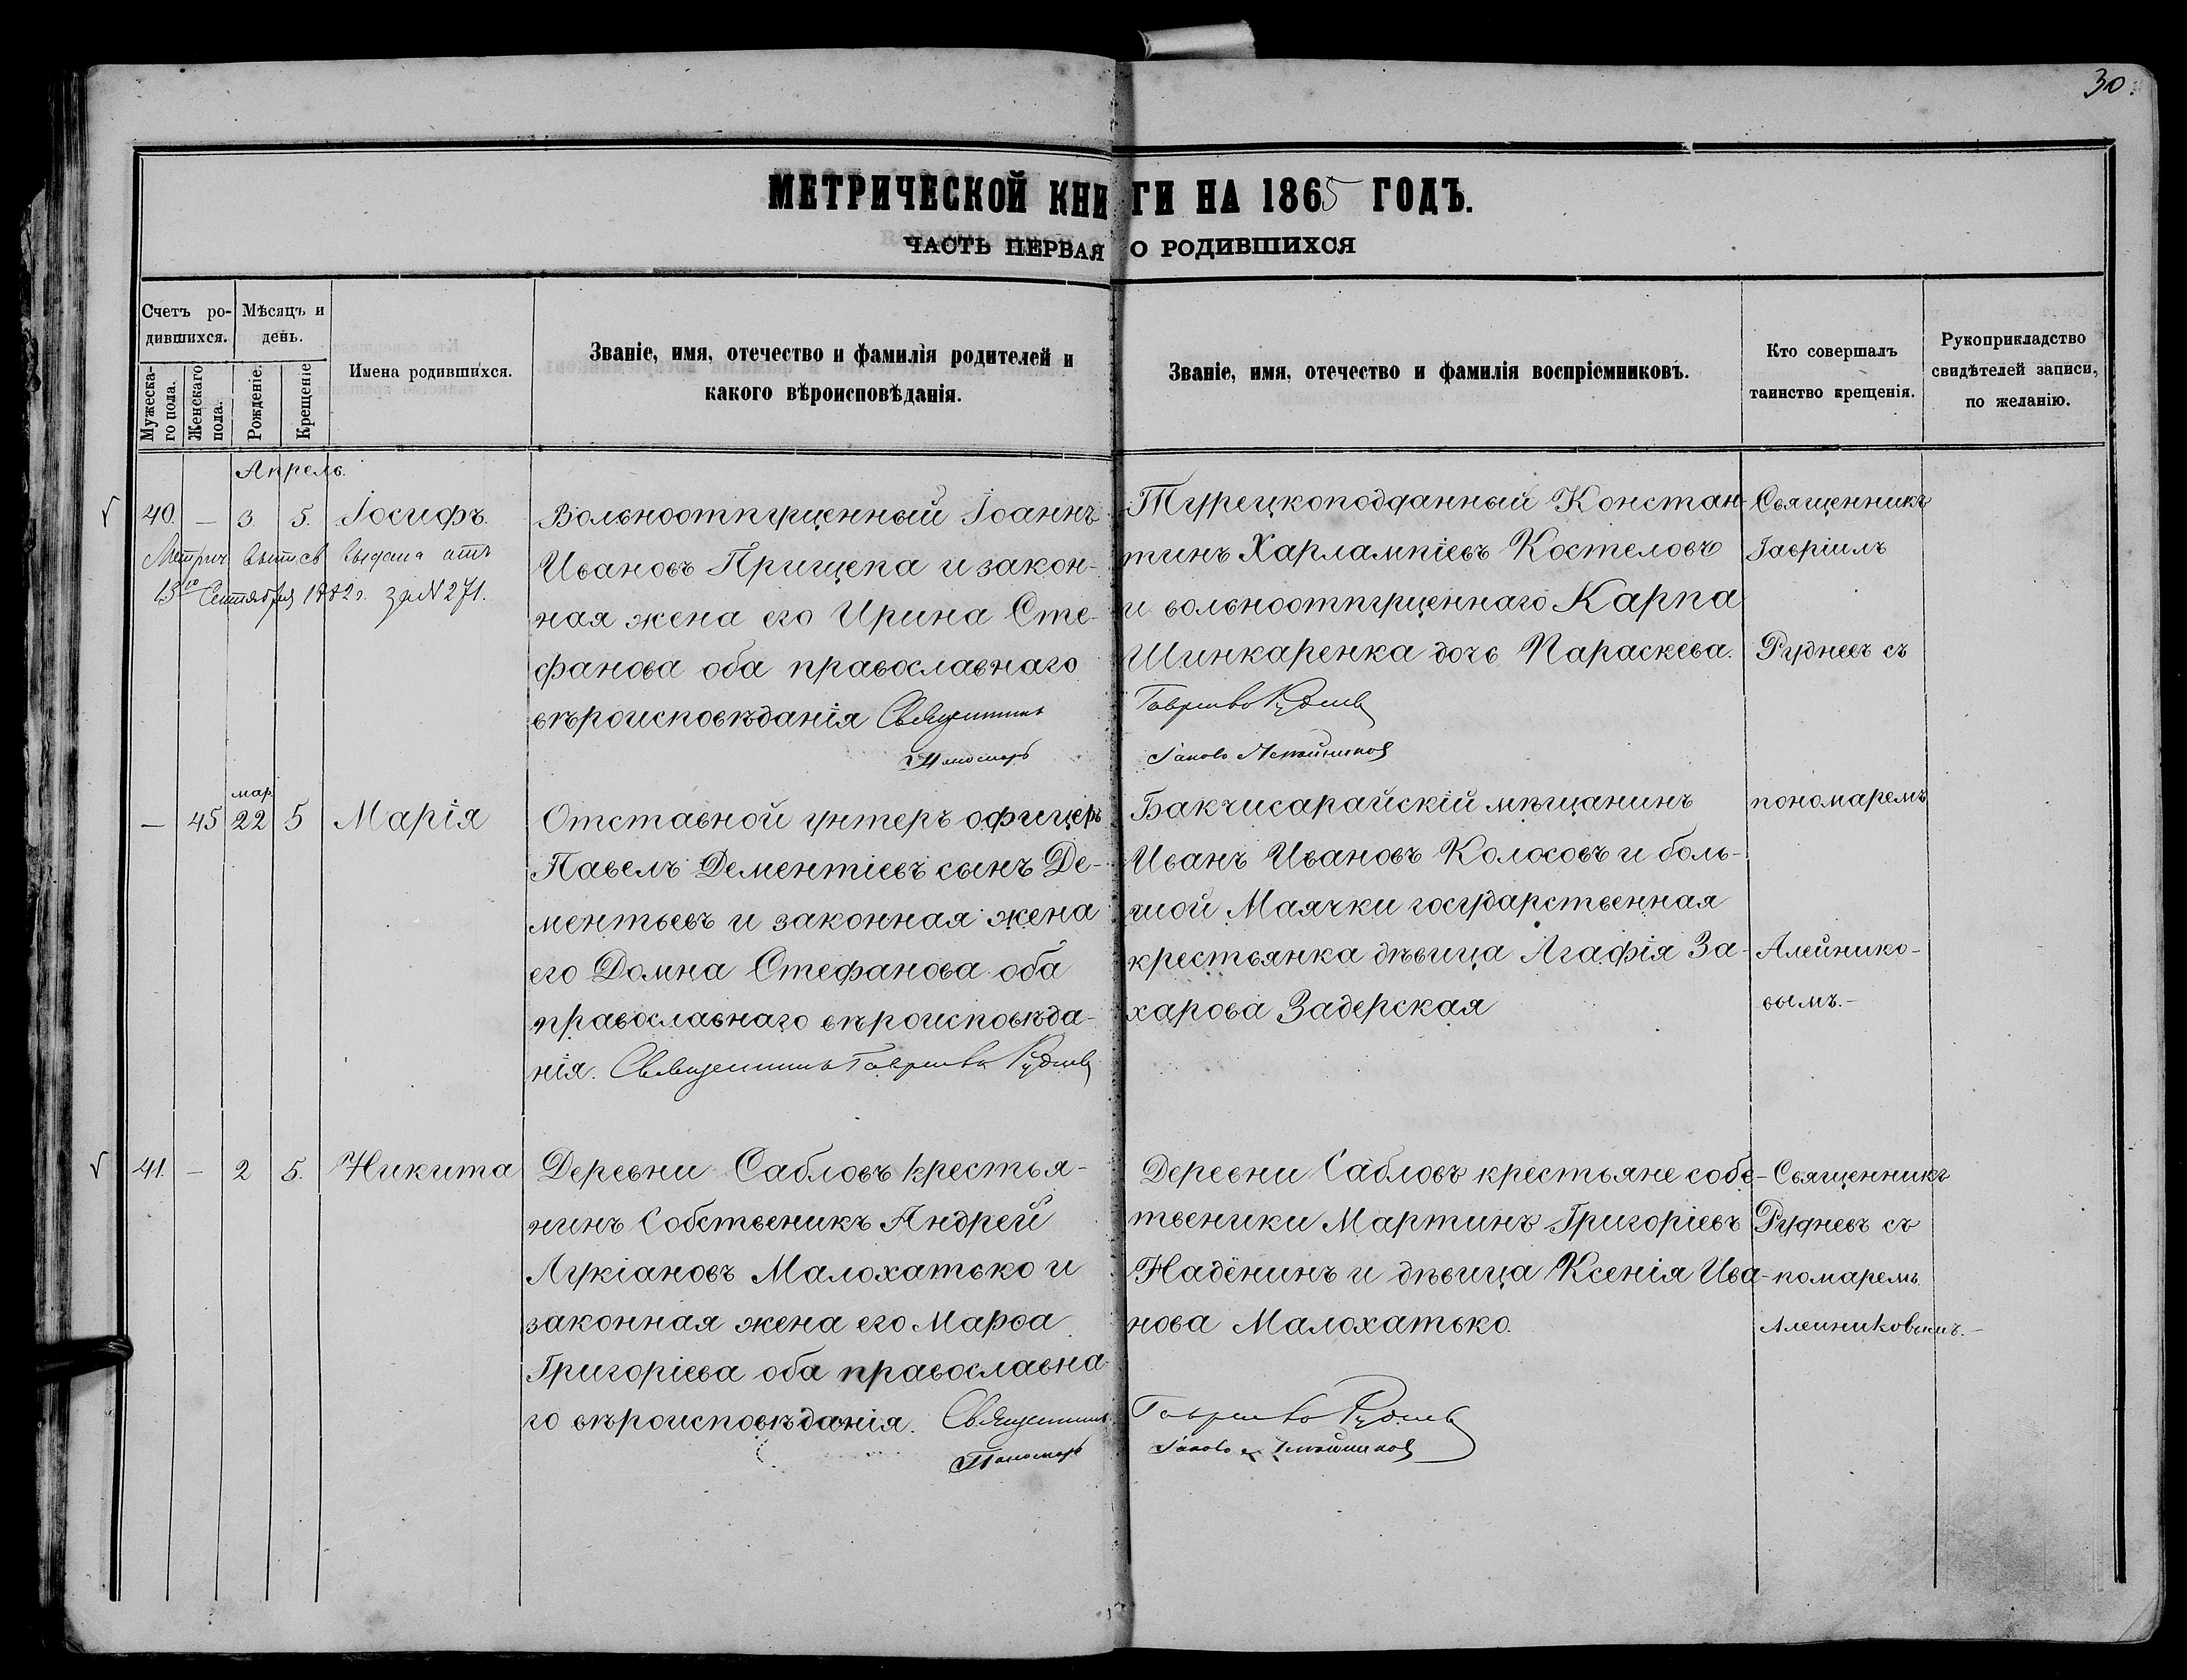 30.
МЕТРИЧЕСКОЙ КНИГИ НА 1865 ГОДЪ.
ЧАСТЬ ПЕРВАЯ О РОДИВШИХСЯ
Счетъ ро-
дившихся.
Мужеска-
го пола.
Женскаго
пола.
Мѣсяцъ и
день.
Рожденіе.
Крещеніе
Имена родившихся.
Званіе, имя, отечество и фамилія родителей и
какого вѣроисповѣданія.
Званіе, имя, отечество и фамилія воспріемниковъ.
Кто совершалъ
таинство крещенія.
Рукоприкладство
свидѣтелей записи,
по желанію.
Апрель.
40. — 3. 5. Іосифъ.
Метрич. выдана отъ
13го Сентября 1882 г. за N 271.
Вольноотпущенный Іоаннъ
Ивановъ Прищепа и закон-
ная жена его Ирина Сте-
фанова оба православнаго
вѣроисповѣданія Священникъ
Пономарь
Турецкоподданный Констан-
тинъ Харлампіевъ Костеловъ
и вольноотпущеннаго Карпа
Шинкаренка дочь Параскева.
Гавріилъ Рудневъ
Іаковъ Алейниковъ
Священникъ
Гавріилъ
Рудневъ съ
мар.
— 45 22 5 Марія
Отставной унтеръ офицеръ
Павелъ Дементіевъ сынъ Де-
ментьевъ и законная жена
его Домна Стефанова оба
православнаго вѣроисповѣда-
нія. Священникъ Гавріилъ Рудневъ
Бакчисарайскій мѣщанинъ
Иванъ Ивановъ Колосовъ и боль-
шой Маячки государственная
крестьянка дѣвица Агафія За-
харова Задерская
пономаремъ
Алейнико-
вымъ.-
41. — 2 5. Никита
Деревни Сабловъ крестья-
нинъ Собственикъ Андрей
Лукіановъ Малохатько и
законная жена его Марѳа
Григоріева оба православна-
го вѣроисповѣданія. Священникъ
Пономарь
Деревни Сабловъ крестьяне собс-
твеники Мартинъ Григоріевъ
Надёнинъ и дѣвица Ксенія Ива-
нова Малохатько.
Гавріилъ Рудневъ
Іаковъ Алейниковъ
Священникъ
Рудневъ съ
помаремъ
Алейниковымъ.-